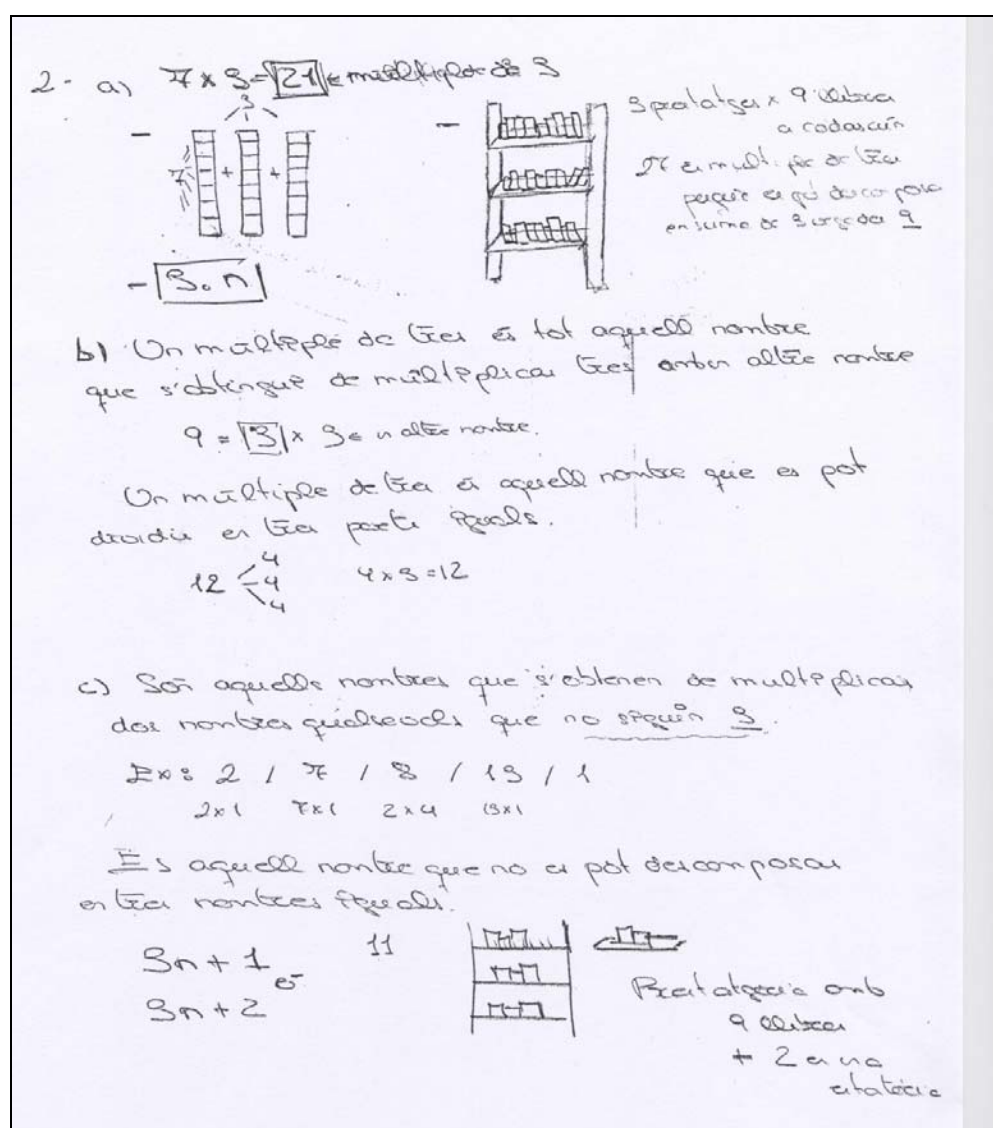 2- a) 7 x 3 = 21 ← múltiple de 3
3
- 7 + +
- 3 prestatges x 9 llibres
a cadascún
27 és múltiple de tres
perquè es pot descomposar
en suma de 3 vegades 9
- 3.n
b) Un múltiple de tres és tot aquell nombre
que s'obtingui de múltiplicar tres amb un altre nombre
9 = 3 x 3 ← un altre nombre.
Un múltiple de tres és aquell nombre que es pot
dividir en tres parts iguals.
12 4 4 4 4 x 3 = 12
c) Són aquells nombres que s'obtenen de multiplicar
dos nombres qualsevols que no siguin 3.
Ex: 2 / 7 / 8 / 13 / 1
2x1 7x1 2x4 13x1
És aquell nombre que no es pot descomposar
en tres nombres iguals.
3n + 1 ó
3n + 2
11
Prestatgeria amb
9 llibres
+ 2 en una